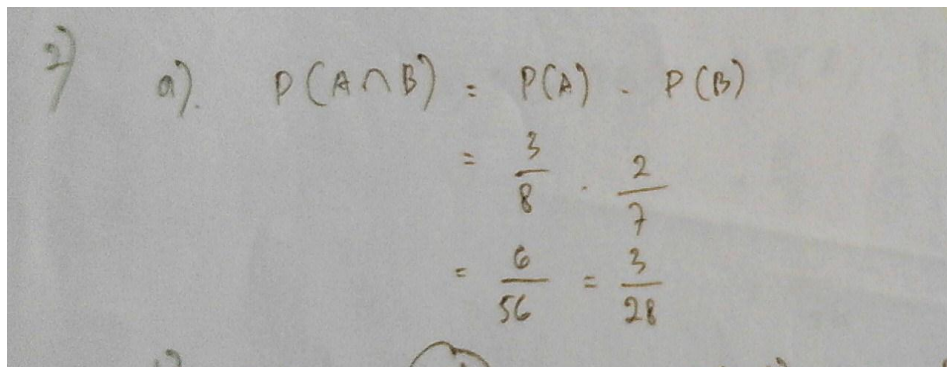 2) a). P(A∩B) = P(A) . P(B)
= 3/8 . 2/7
= 6/56 = 3/28